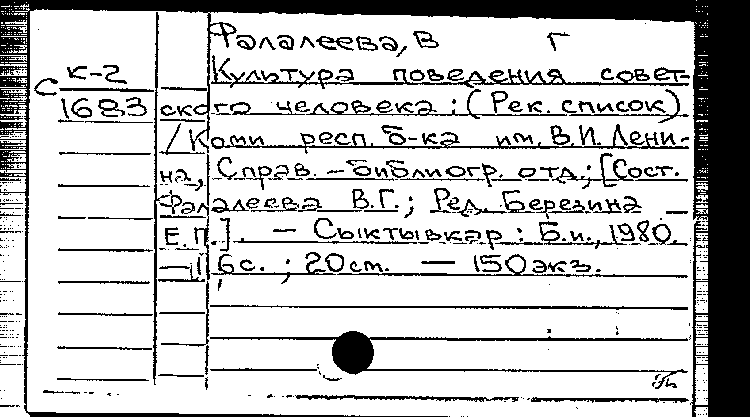 Фалалеева, В Г
К-2 Культура поведения совет-
С 1683 ского человека : (Рек. список)
/ Коми респ. б-ка им. В.И. Лени-
на, Справ. - библиогр. отд.; [Сост.
Фалалеева В.Г.; Ред. Березина
Е.П.]. — Сыктывкар : Б.и., 1980.
— 16с. ; 20 см. — 150 экз.